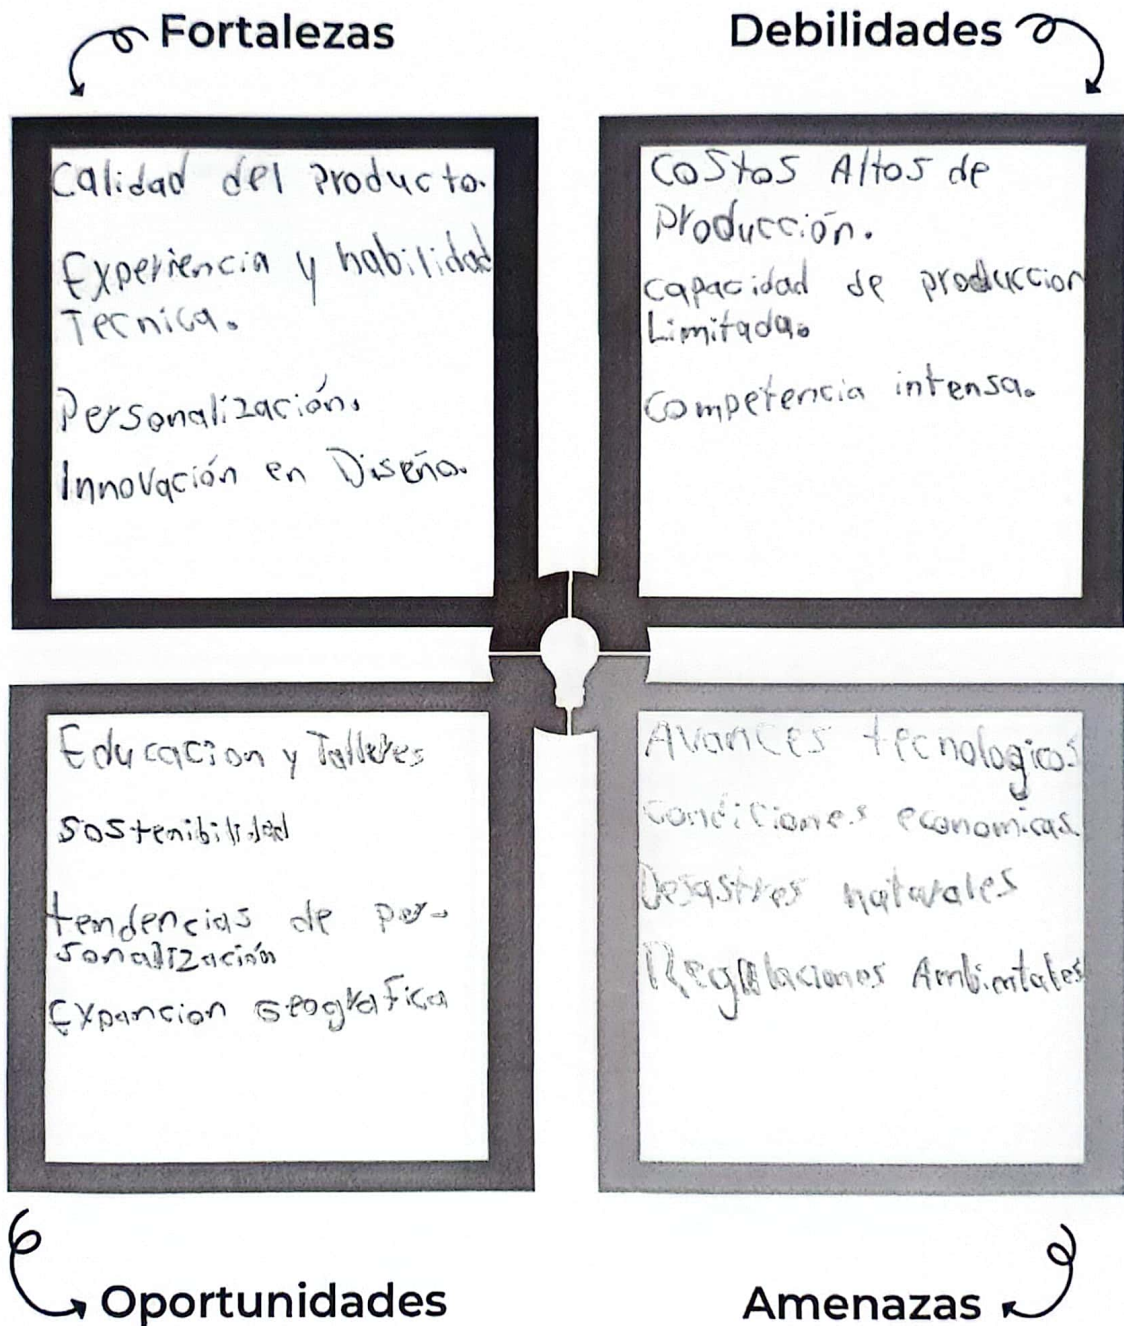 Fortalezas
Calidad del Producto.
Experiencia y habilidad
Tecnica.
Personalización.
Innovación en Diseño.
Debilidades
Costos Altos de
Producción.
capacidad de produccion
Limitada.
Competencia intensa.
Educacion y Talleres
Sostenibilidad
tendencias de per-
sonalización
Expancion Geografica
Oportunidades
Avances tecnologicos
Condiciones economicas.
Desastres naturales
Regulaciones Ambientales
Amenazas